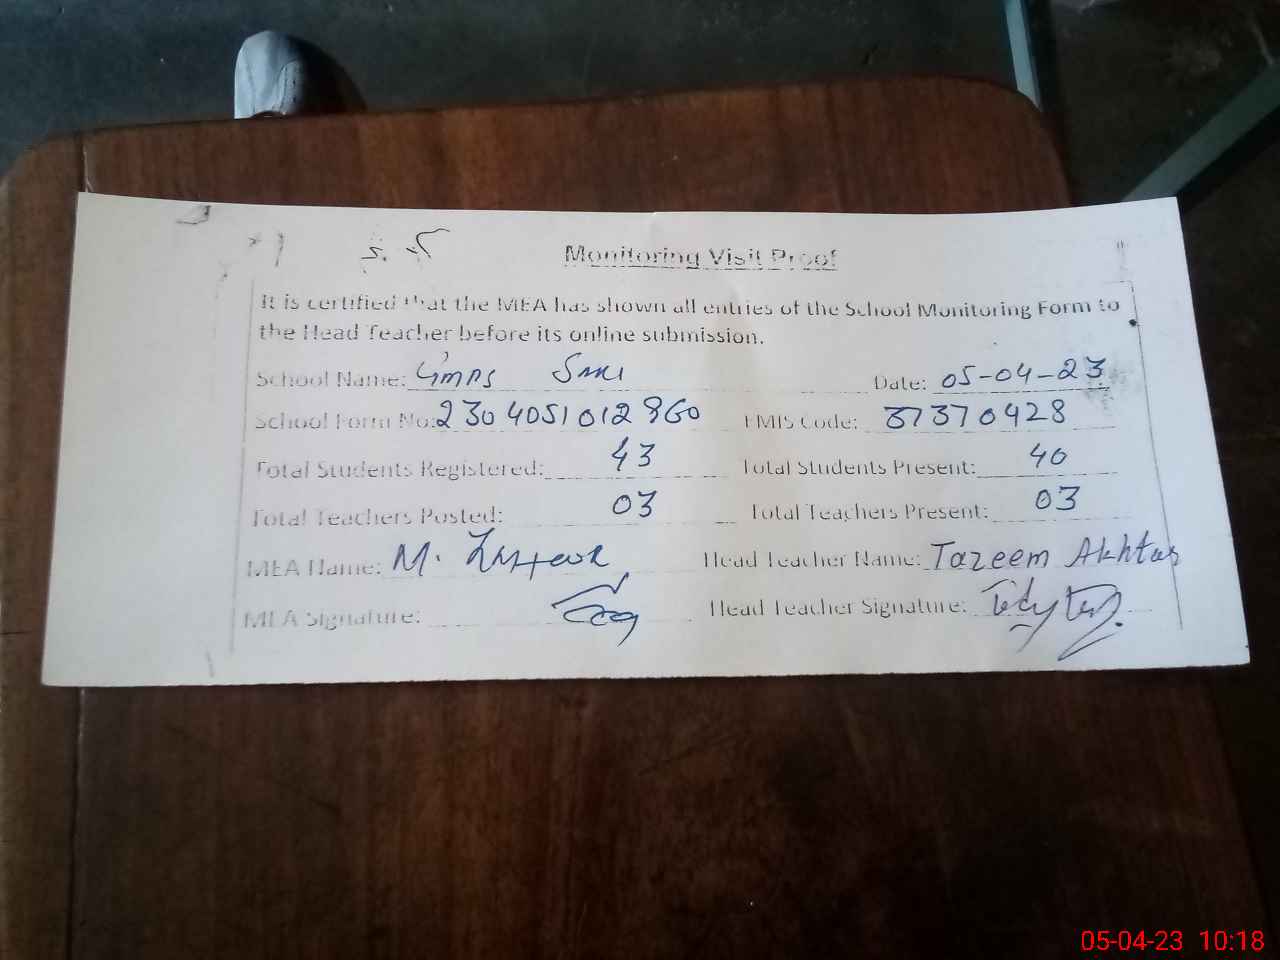 Monitoring Visit Proof
It is certified that the MEA has shown all entries of the School Monitoring Form to
the Head Teacher before its online submission.
School Name: GMPS Date: 05-04-23
School Form No: 2304051012860 EMIS Code: 37370428
Total Students Registered: 43 Total Students Present: 40
Total Teachers Posted: 03 Total Teachers Present: 03
MEA Name: M. Head Teacher Name: Tazeem Akhtar
MEA Signature: Head Teacher Signature:
05-04-23 10:18